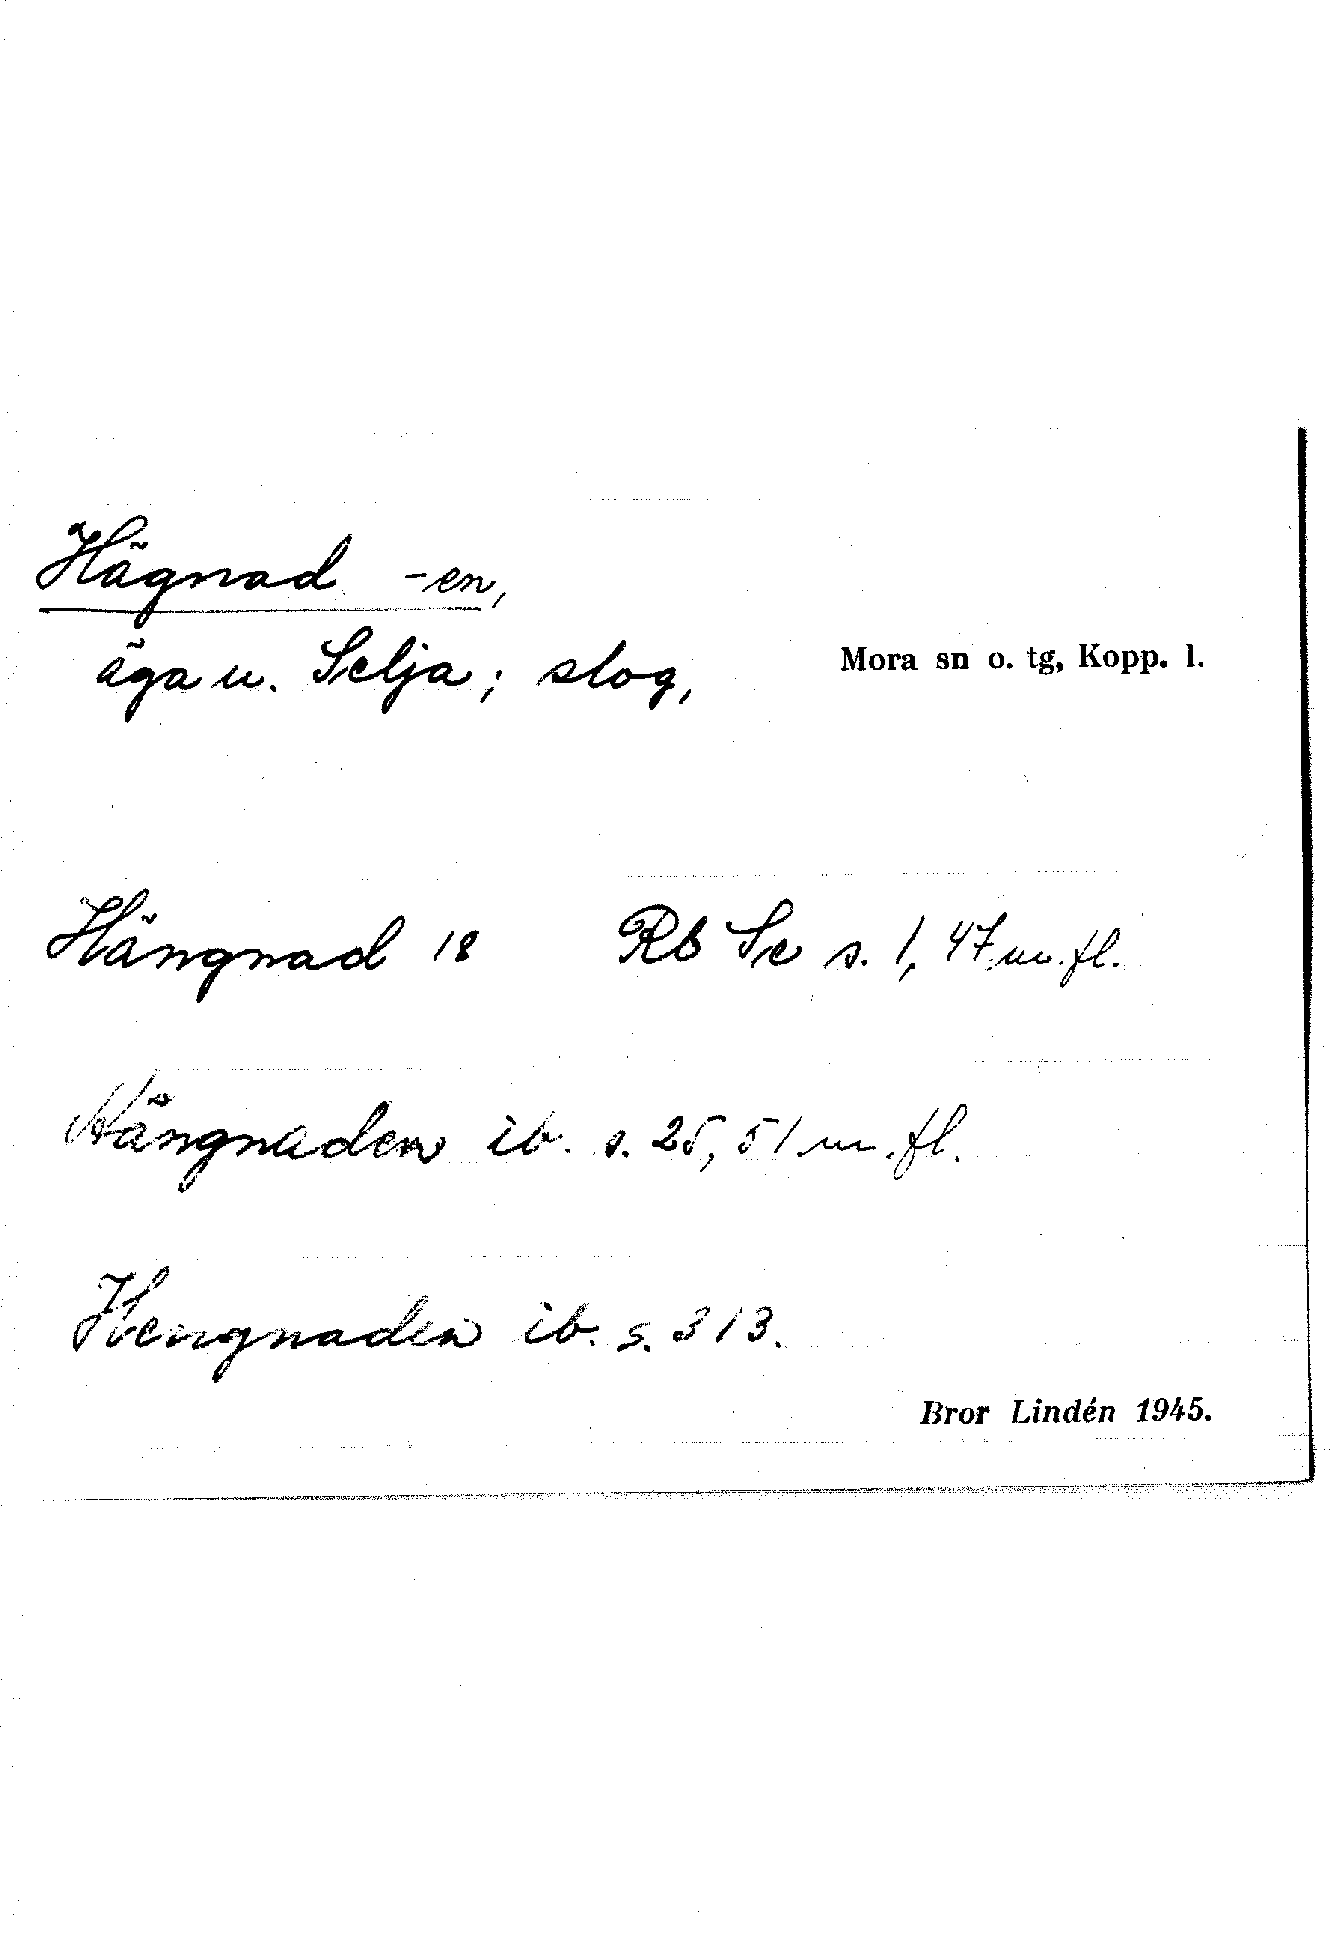 Hägnad -en,
äga u. Selja; slog,
Mora sn o. tg, Kopp. l.
Hängnad 18 Rb Se s. 1, 47 m. fl.
Hängnaden ib. s. 25, 51 m. fl.
Hengnaden ib. s. 313.
Bror Lindén 1945.